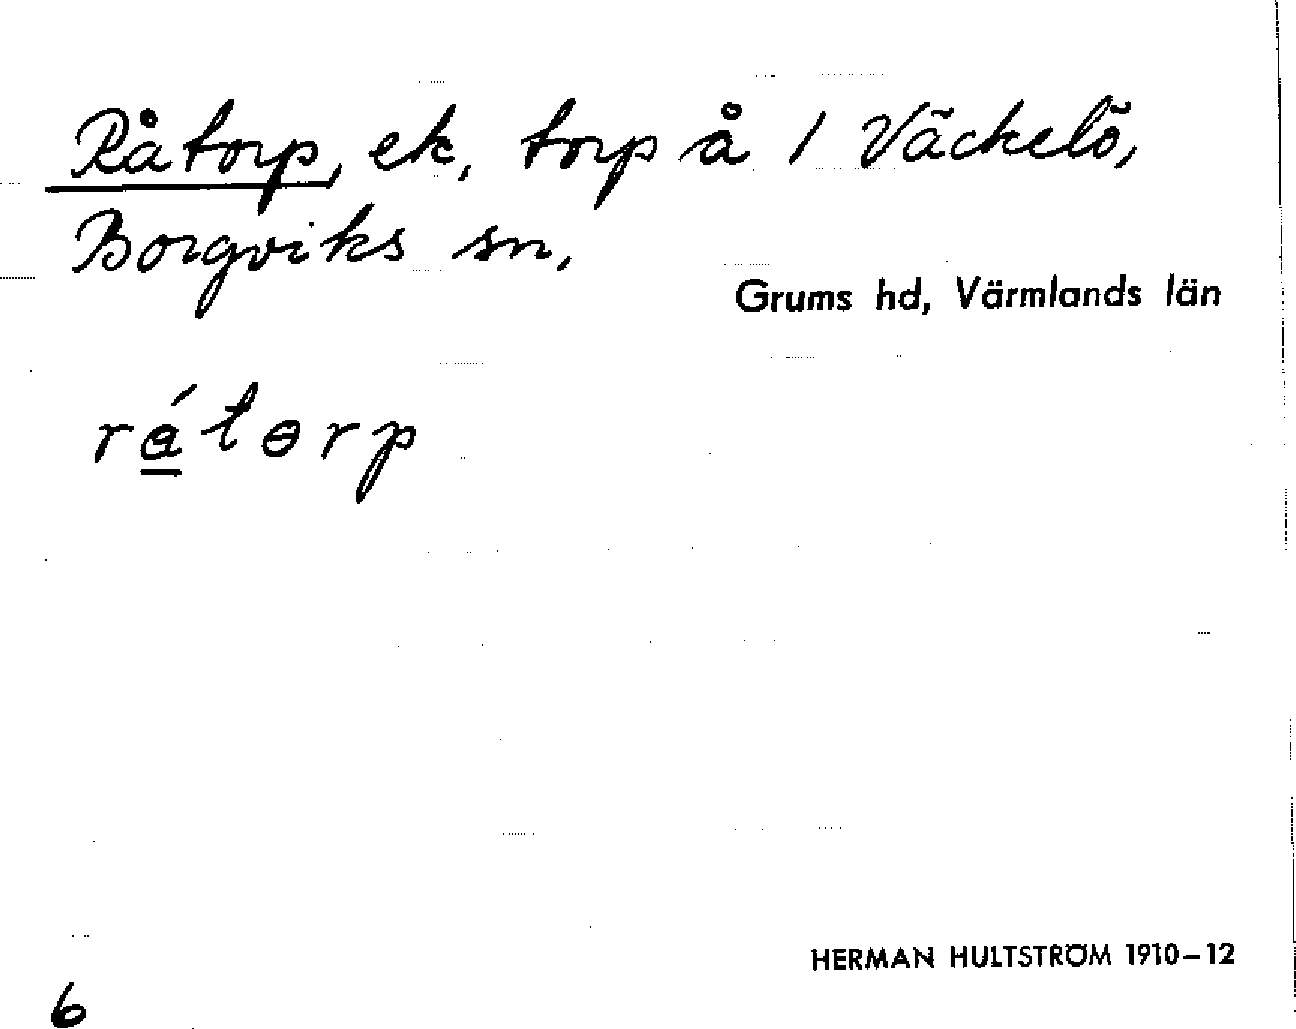 Råtorp, ek, torp å 1 Väckelö,
Borgviks sn,
Grums hd, Värmlands län
HERMAN HULTSTRÖM 1910–12
6